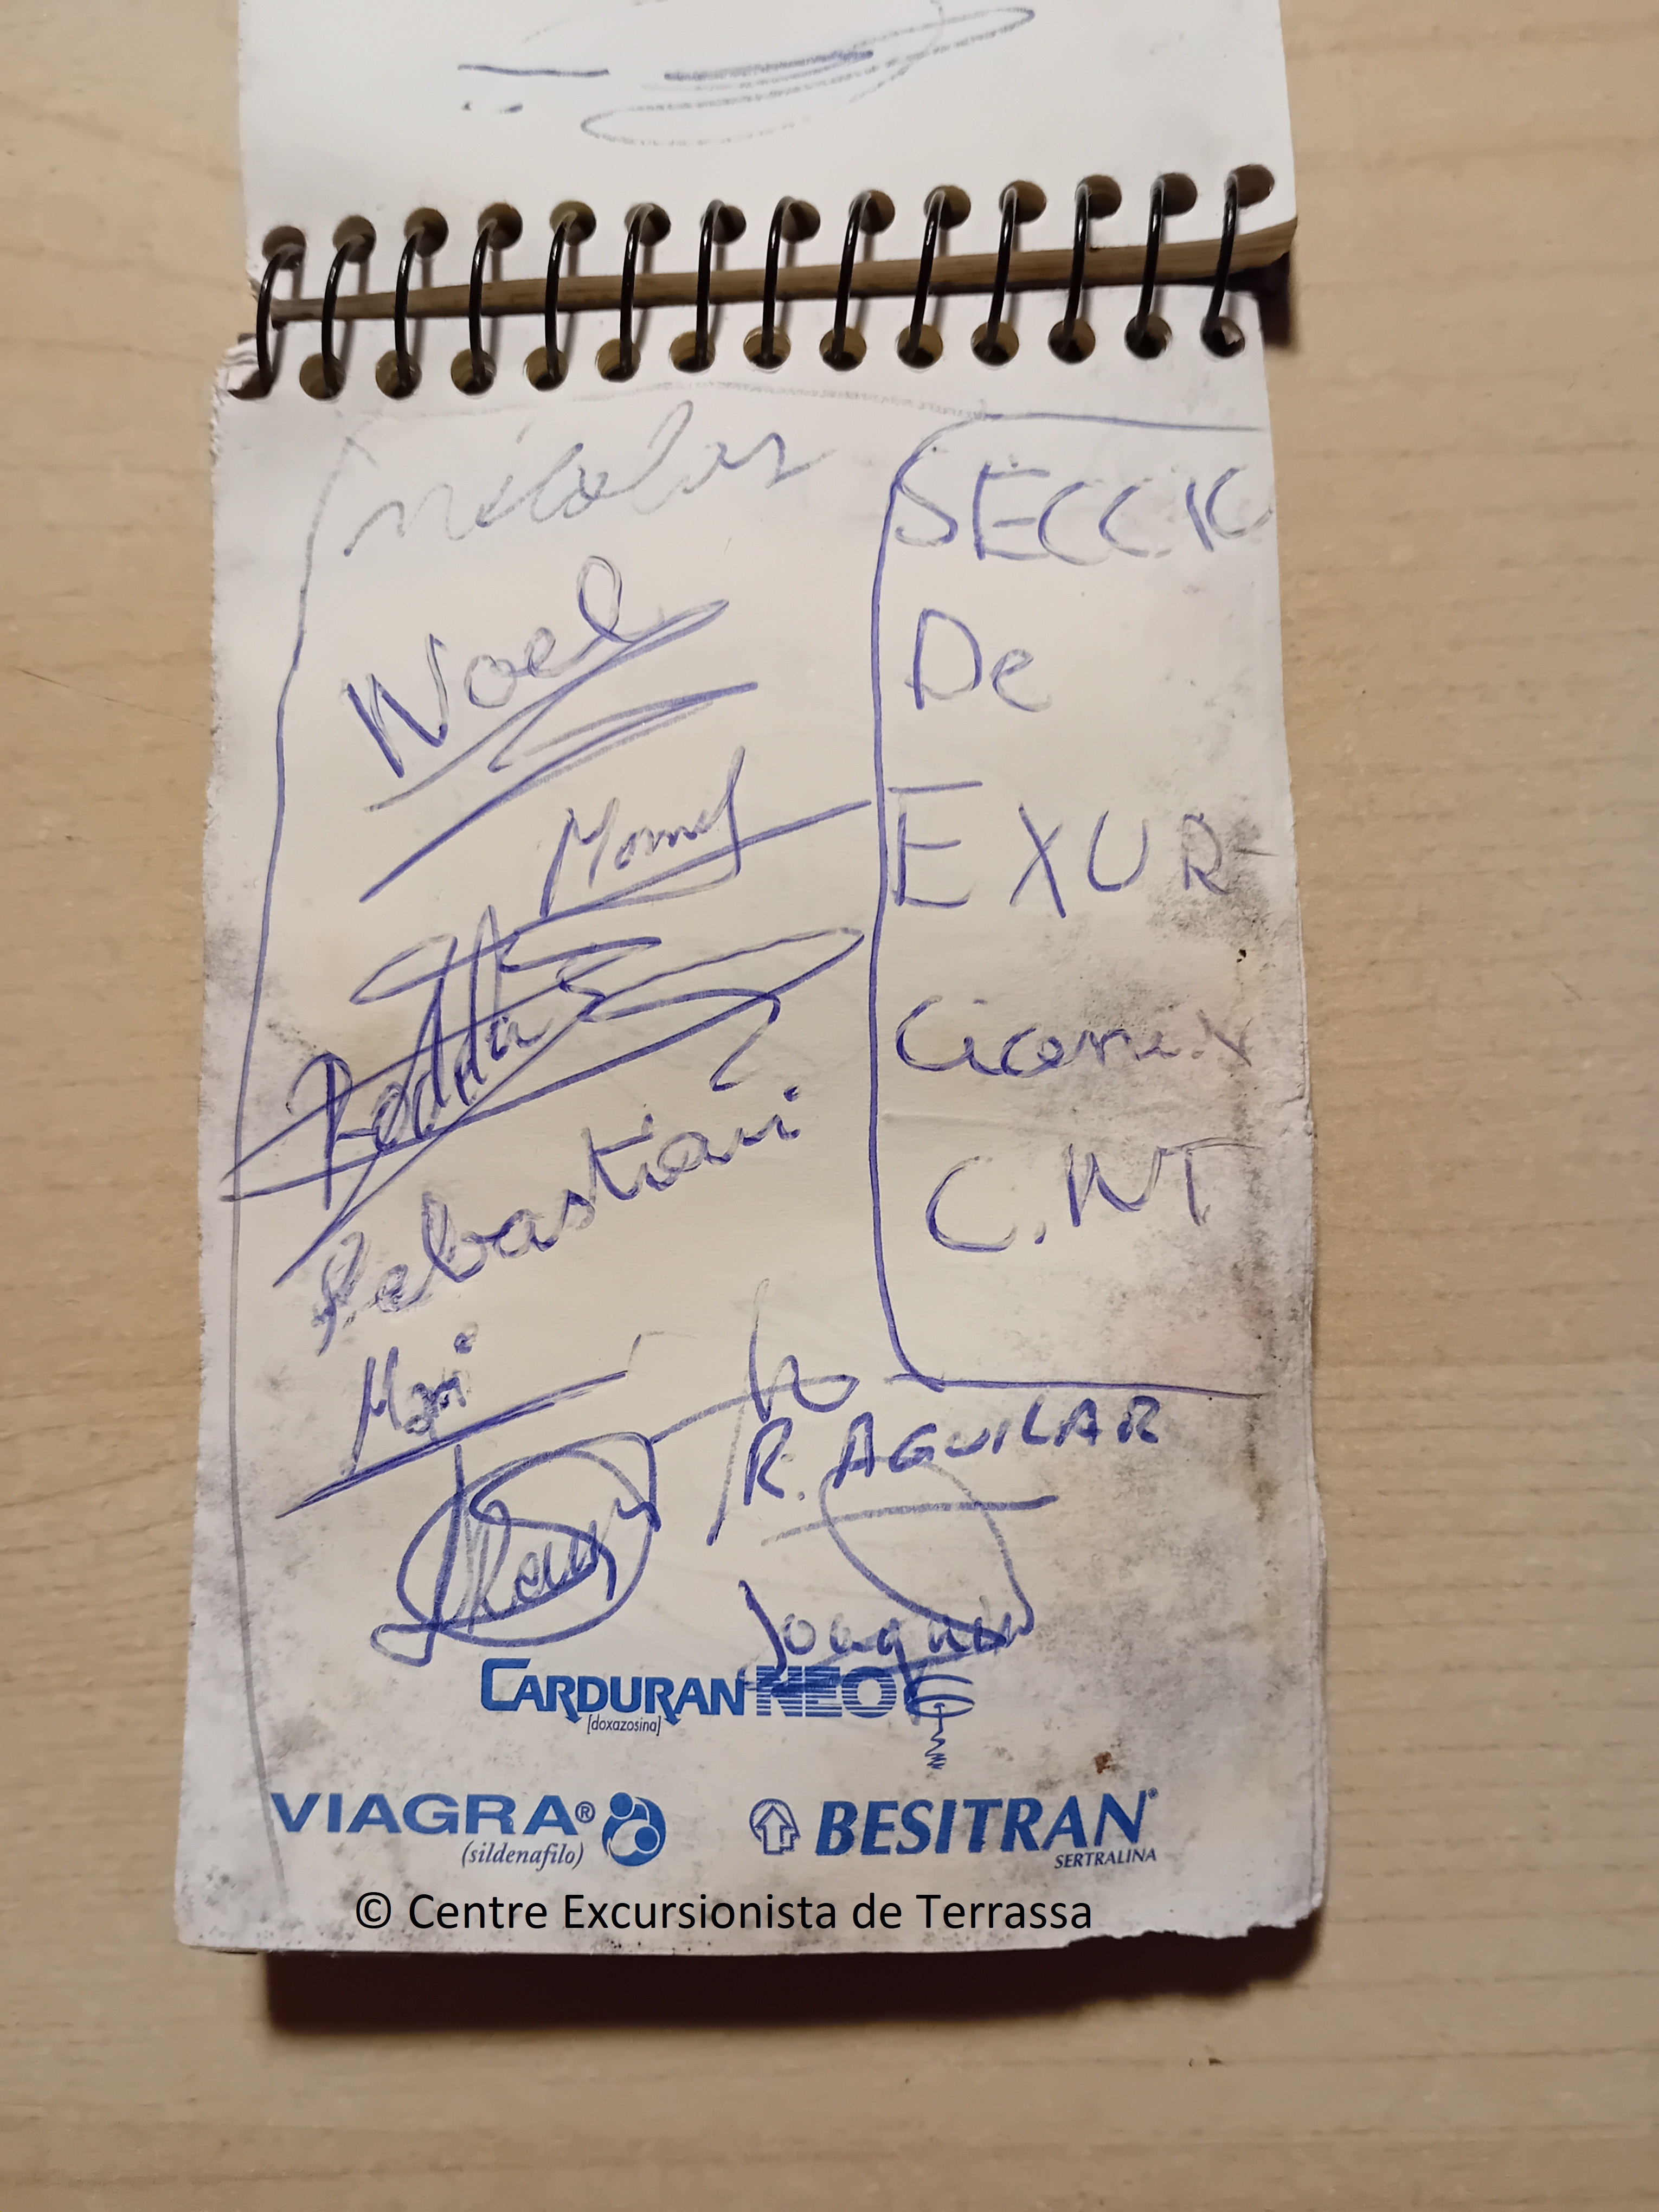 nicolas
Noel
Sebastian
Mari
SECCIO
De
EXUR
C.NT
R. AGUILAR
Joaquin
CARDURAN NEO
[doxazosina]
VIAGRA®
(sildenafilo)
BESITRAN®
SERTRALINA
© Centre Excursionista de Terrassa